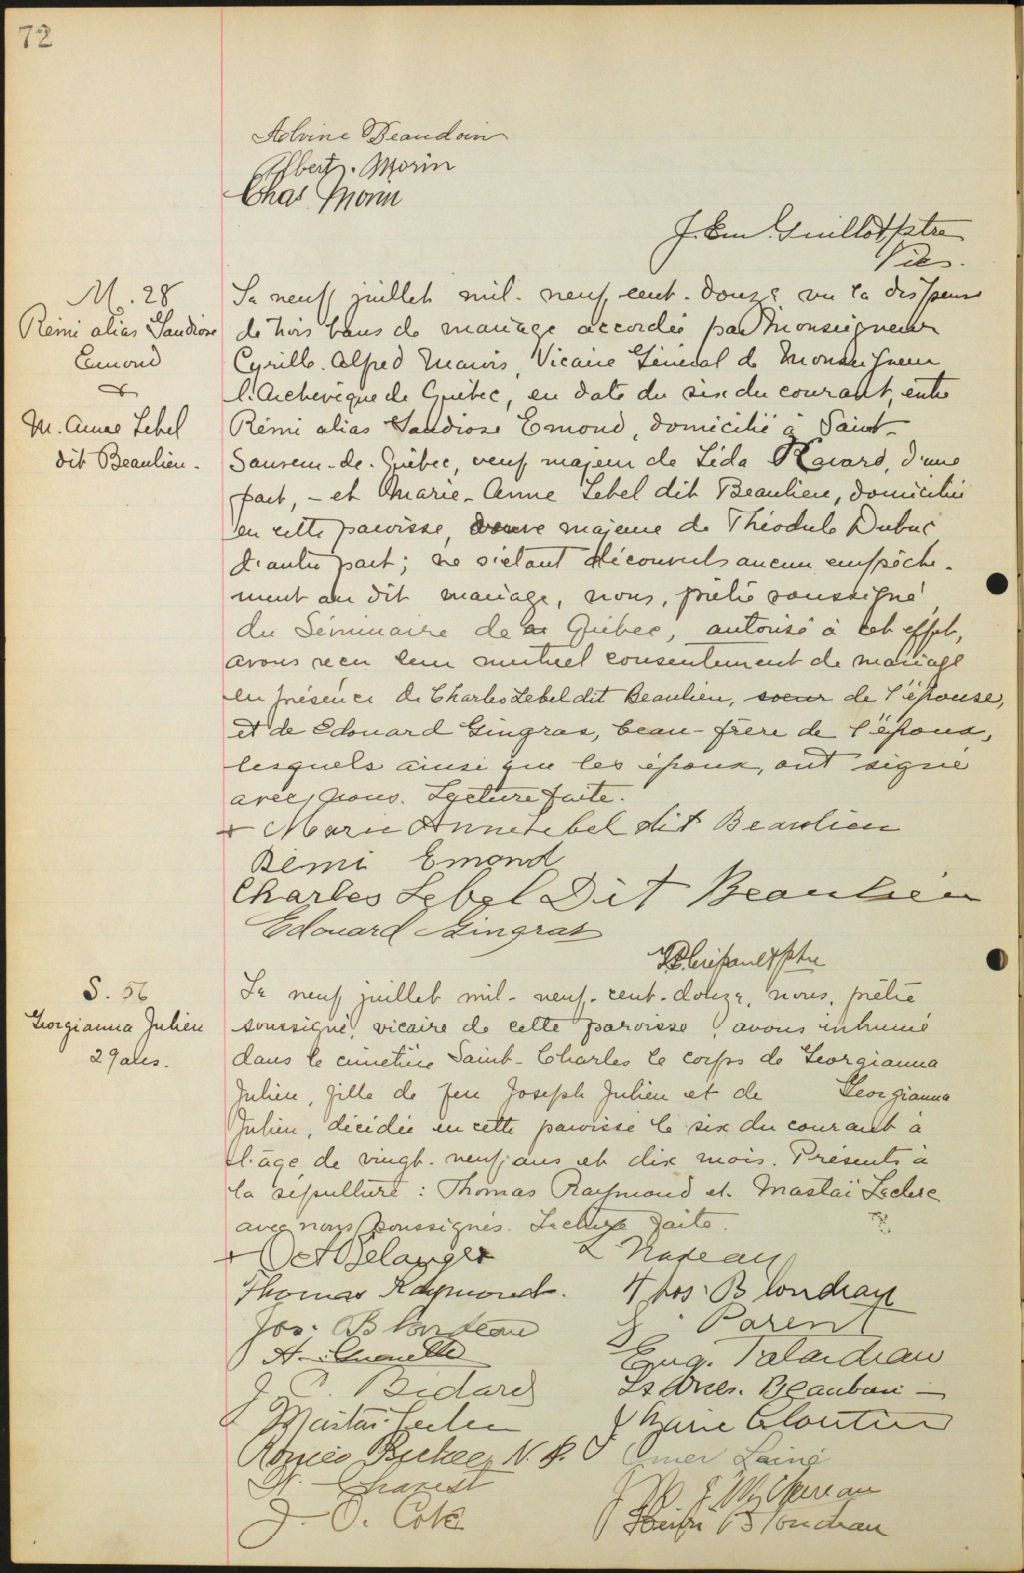 72
Alvine Beaudoin
Albert. Morin
Chas Morin
J. Em. Guillot ptre
Vic.
M. 28
Rémi alias Gaudiose
Emond
&
M. Anne Lebel
dit Beaulieu.
Le neuf juillet mil-neuf-cent-douze, vu la dispense
de trois bans de mariage accordée par Monseigneur
Cyrille-Alfred Marois, Vicaire Général de Monseigneur
l'Archevêque de Québec, en date du six du courant, entre
Rémi alias Gaudiose Emond, domicilié à Saint-
Sauveur-de-Québec, veuf majeur de Léda Ravard, d'une
part, - et Marie-Anne Lebel dit Beaulieu, domiciliée
en cette paroisse, veuve majeure de Théodule Dubuc,
d'autre part; ne s'étant découverts aucun empêche-
ment au dit mariage, nous, prêtre soussigné,
du Séminaire de Québec, autorisé à cet effet,
avons reçu leur mutuel consentement de mariage
en présence de Charles Lebel dit Beaulieu, soeur de l'épouse,
et de Edouard Gingras, beau-frère de l'époux,
lesquels ainsi que les époux, ont signé
avec nous. Lecture faite.
+ Marie Anne Lebel dit Beaulieu
Rémi Emond
Charles Lebel Dit Beaulieu
Edouard Gingras
ptre
S. 56
Georgianna Julien
29 ans.
Le neuf juillet mil-neuf-cent-douze, nous, prêtre
soussigné, vicaire de cette paroisse, avons inhumé
dans le cimetière Saint-Charles le corps de Georgianna
Julien, fille de feu Joseph Julien et de Georgianna
Julien, décédée en cette paroisse le six du courant à
l'âge de vingt-neuf ans et dix mois. Présents à
la sépulture : Thomas Raymond et Mastaï Leclerc
avec nous soussignés. Lecture faite.
+ Oct Bélanger L Nadeau
Thomas Raymond. Thos. Blondeau
Jos. Blondeau Parent
A. Guenette Eug. Talardeau
J. C. Bidard
Mastaï Leclerc Marie Cloutier
Roméo N. P. Omer Lainé
Charest
J. O. Coté Henri Blondeau